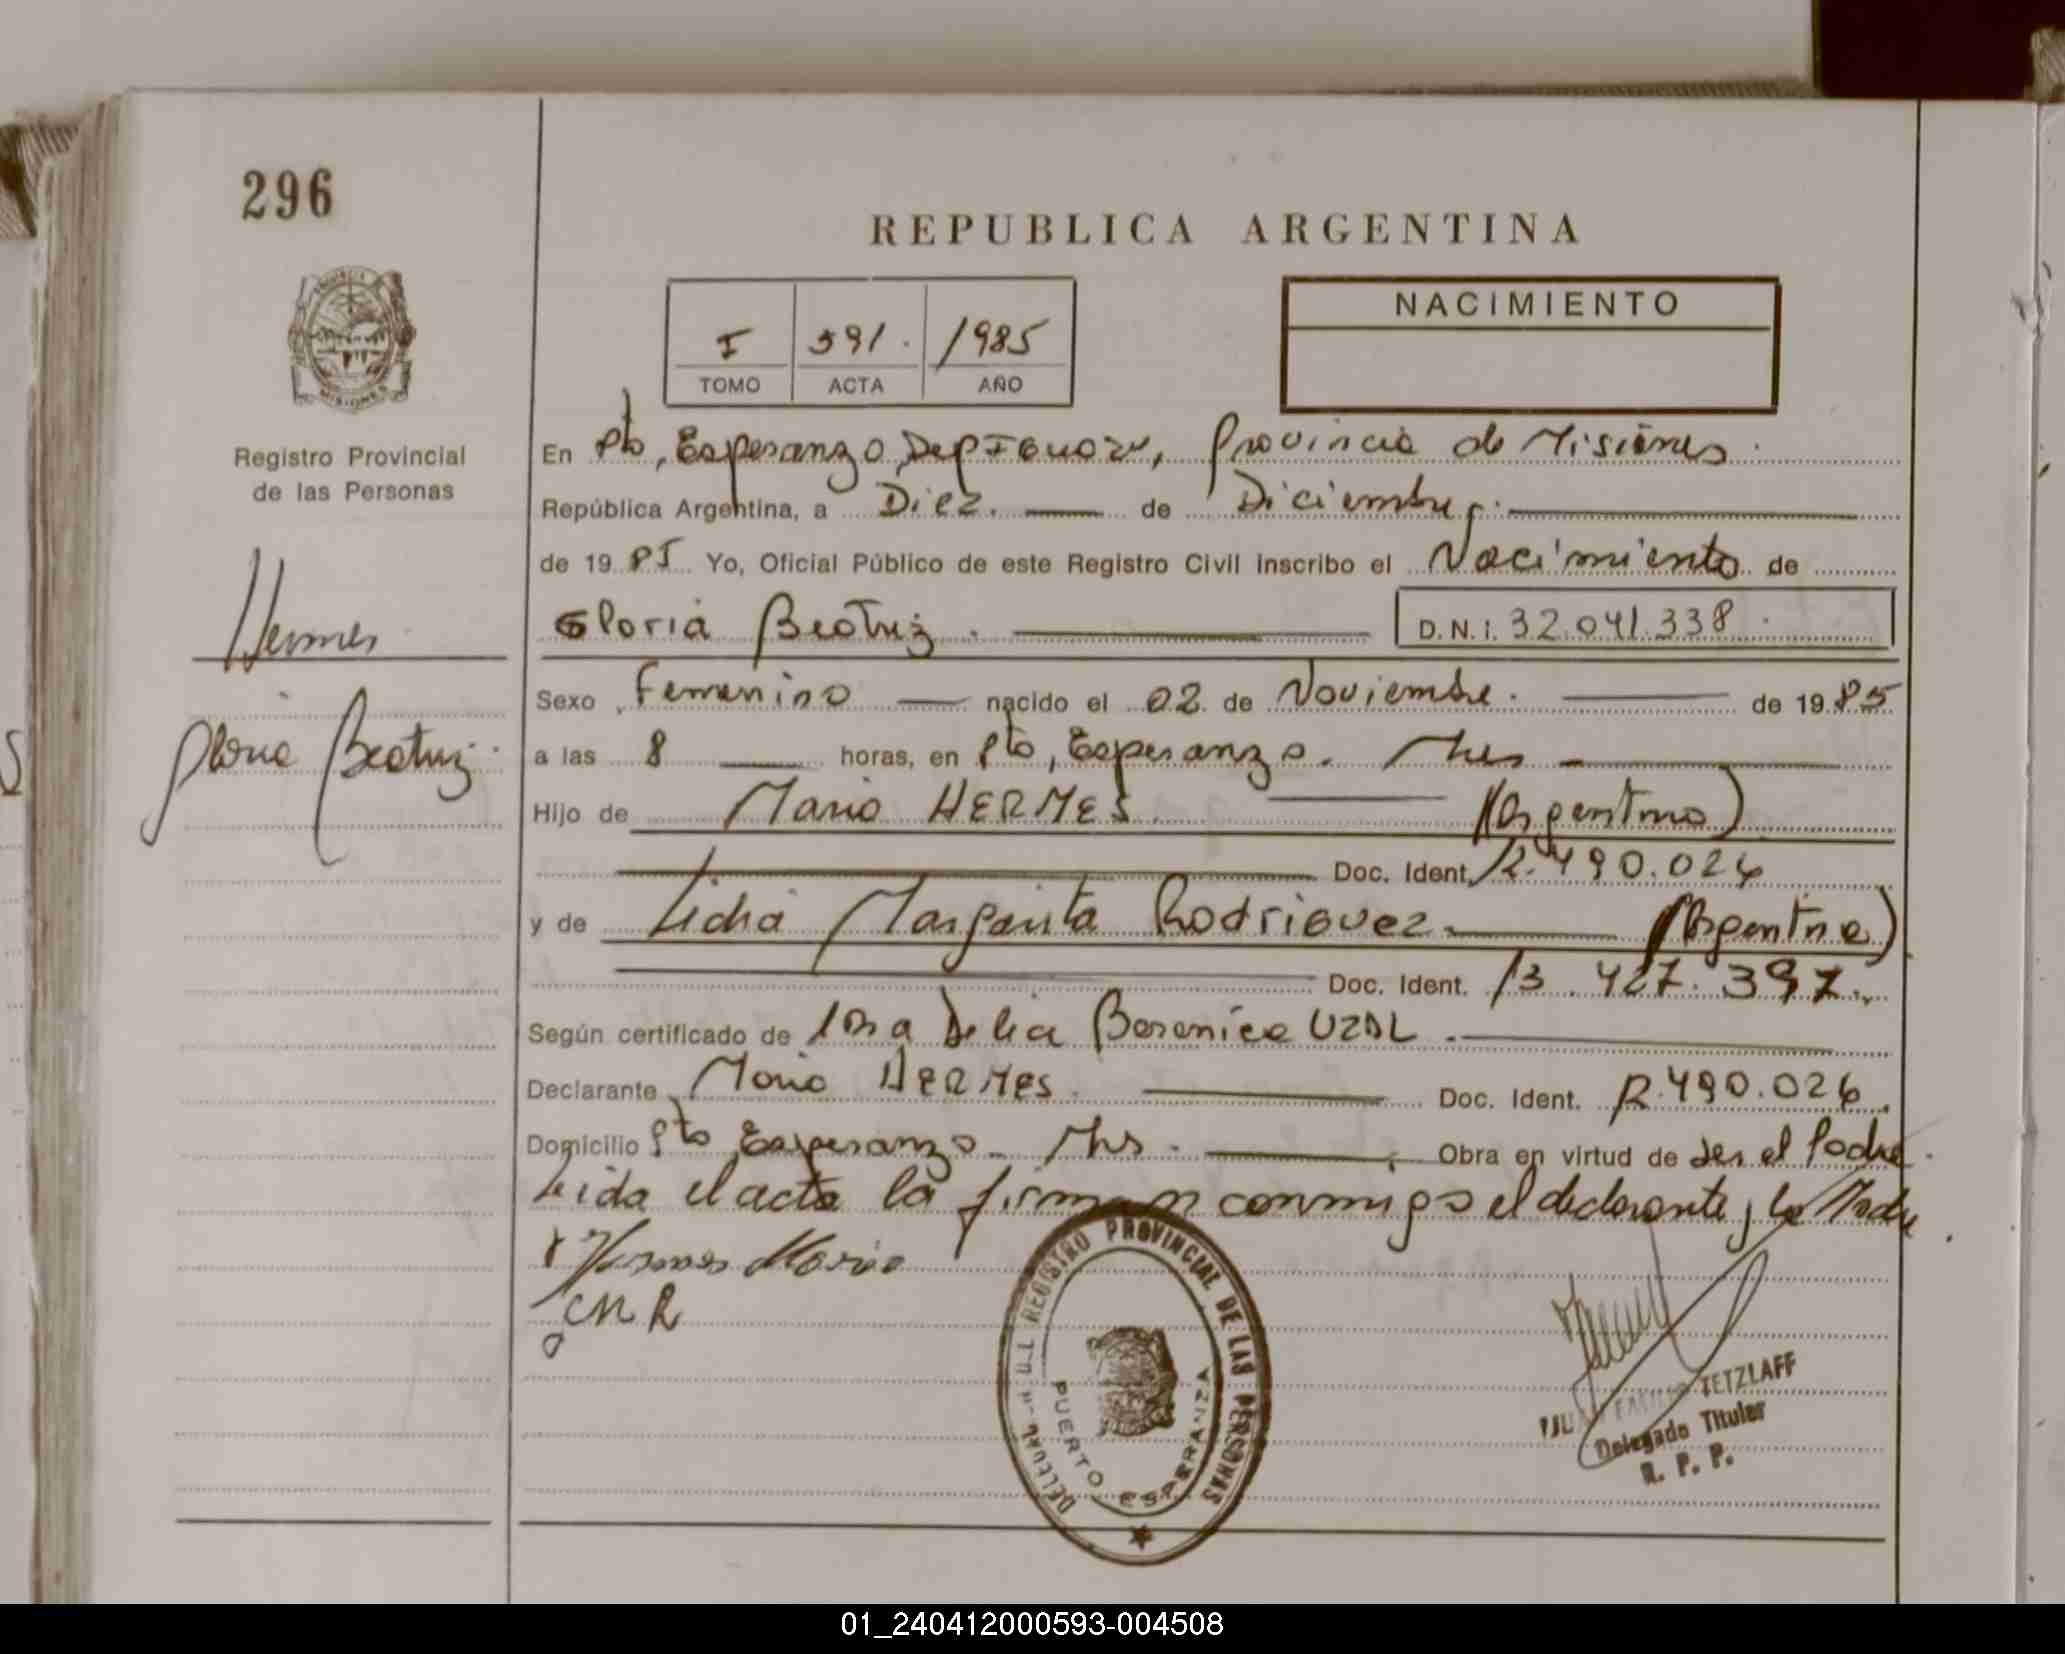 296
REPUBLICA ARGENTINA
PROVINCIA
MISIONES
Registro Provincial
de las Personas
I 591. 1985
TOMO ACTA AÑO
NACIMIENTO
En Pto, Esperanza, Dep Iguazu, Provincia de Misiones.
República Argentina, a Diez. de Diciembre.
de 19 85 Yo, Oficial Público de este Registro Civil inscribo el Nacimiento de
Gloria Beatriz. D.N.I. 32.041.338.
Hermes
Gloria Beatriz.
Sexo Femenino nacido el 02 de Noviembre. de 19 85
a las 8 horas, en Pto, Esperanza. Mnes
Hijo de Mario HERMES. (Argentino)
Doc. Ident. 12.490.026
y de Lidia Margarita Rodriguez. (Argentina)
Doc. Ident. 13.427.397.
Según certificado de Delia Berenice UZAL.
Declarante Mario HERMES. Doc. Ident. 12.490.026.
Domicilio Pto Esperanza. Mns. Obra en virtud de ser el Padre.
Leida el acta la firman conmigo el declarante y la Madre.
Hermes Mario
REGISTRO PROVINCIAL DE LAS PERSONAS
PUERTO ESPERANZA
TETZLAFF
Delegado Titular
R. P. P.
01_240412000593-004508